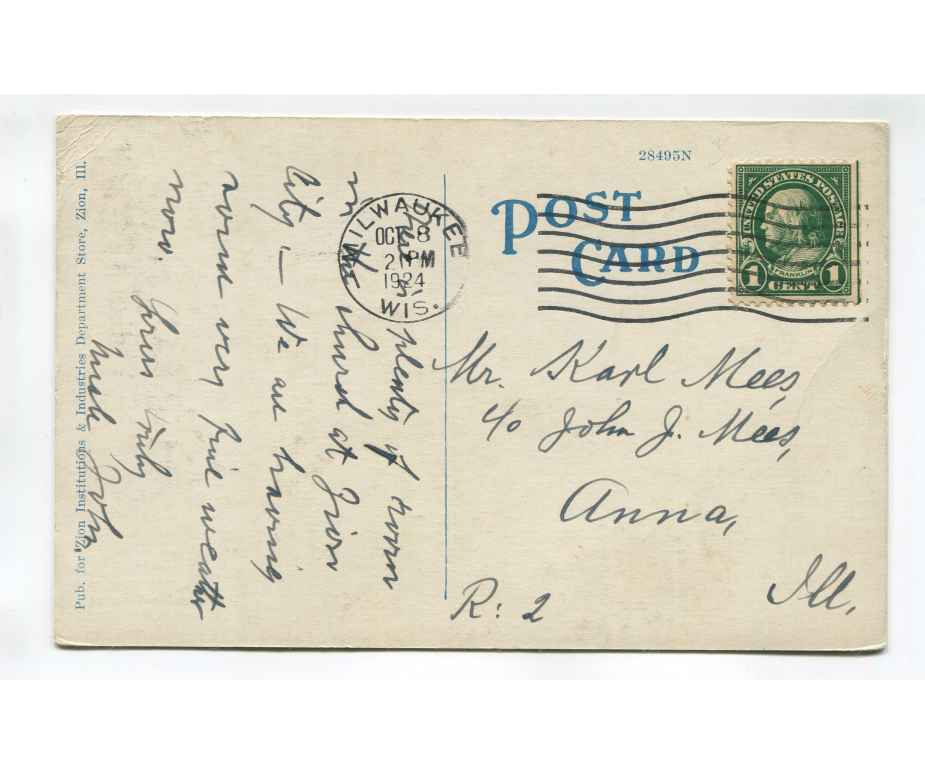 28495N
POST
CARD
UNITED STATES POSTAGE
FRANKLIN
1 CENT 1
MILWAUKEE
OCT 8
2 PM
1924
WIS.
plenty of room
in the church at Zion
City — We are having
some very fine weather
now.
Yours truly
John
Mr. Karl Mees,
c/o John J. Mees,
Anna,
Ill.
R: 2
Pub. for Zion Institutions & Industries Department Store, Zion, Ill.